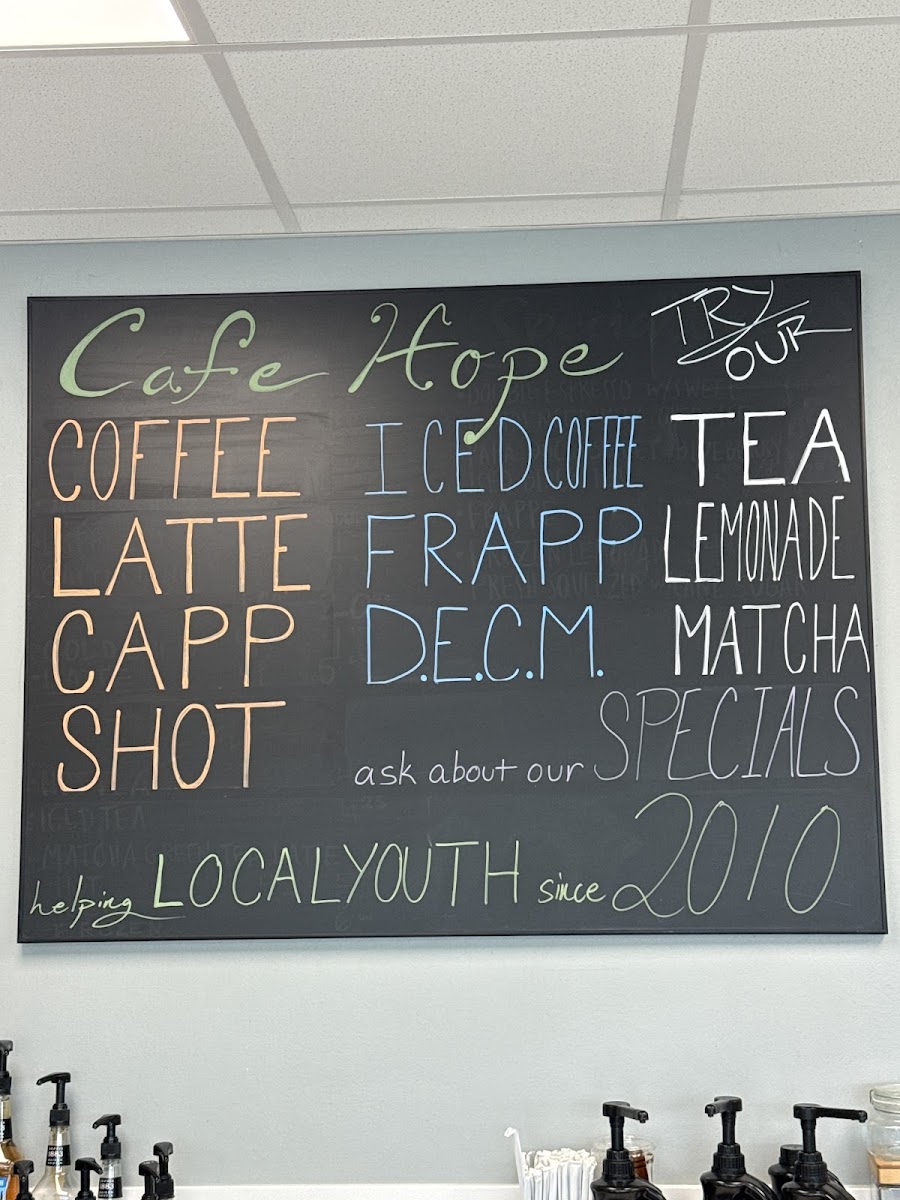 Cafe Hope
TRY
OUR
COFFEE
LATTE
CAPP
SHOT
ICED COFFEE
FRAPP
D.E.C.M.
TEA
LEMONADE
MATCHA
ask about our SPECIALS
helping LOCAL YOUTH since 2010
ICED TEA